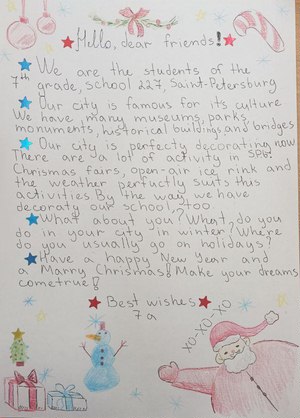 Hello, dear friends!
We are the students of the
7th grade, school 227, Saint-Petersburg
Our city is famous for its culture
We have many museums, parks,
monuments, historical buildings and bridges
Our city is perfecty decorating now
There are a lot of activity in SPb:
Chrismas fairs, open-air ice rink and
the weather perfactly suits this
activities By the way we have
decoraty our school, too
What about you? What do you
do in your city in winter? Where
do you usually go on holidays?
Have a happy New Year and
a Marry Chrismas! Make your dreams
cometrue!
Best wishes
7a
XO-XO-XO